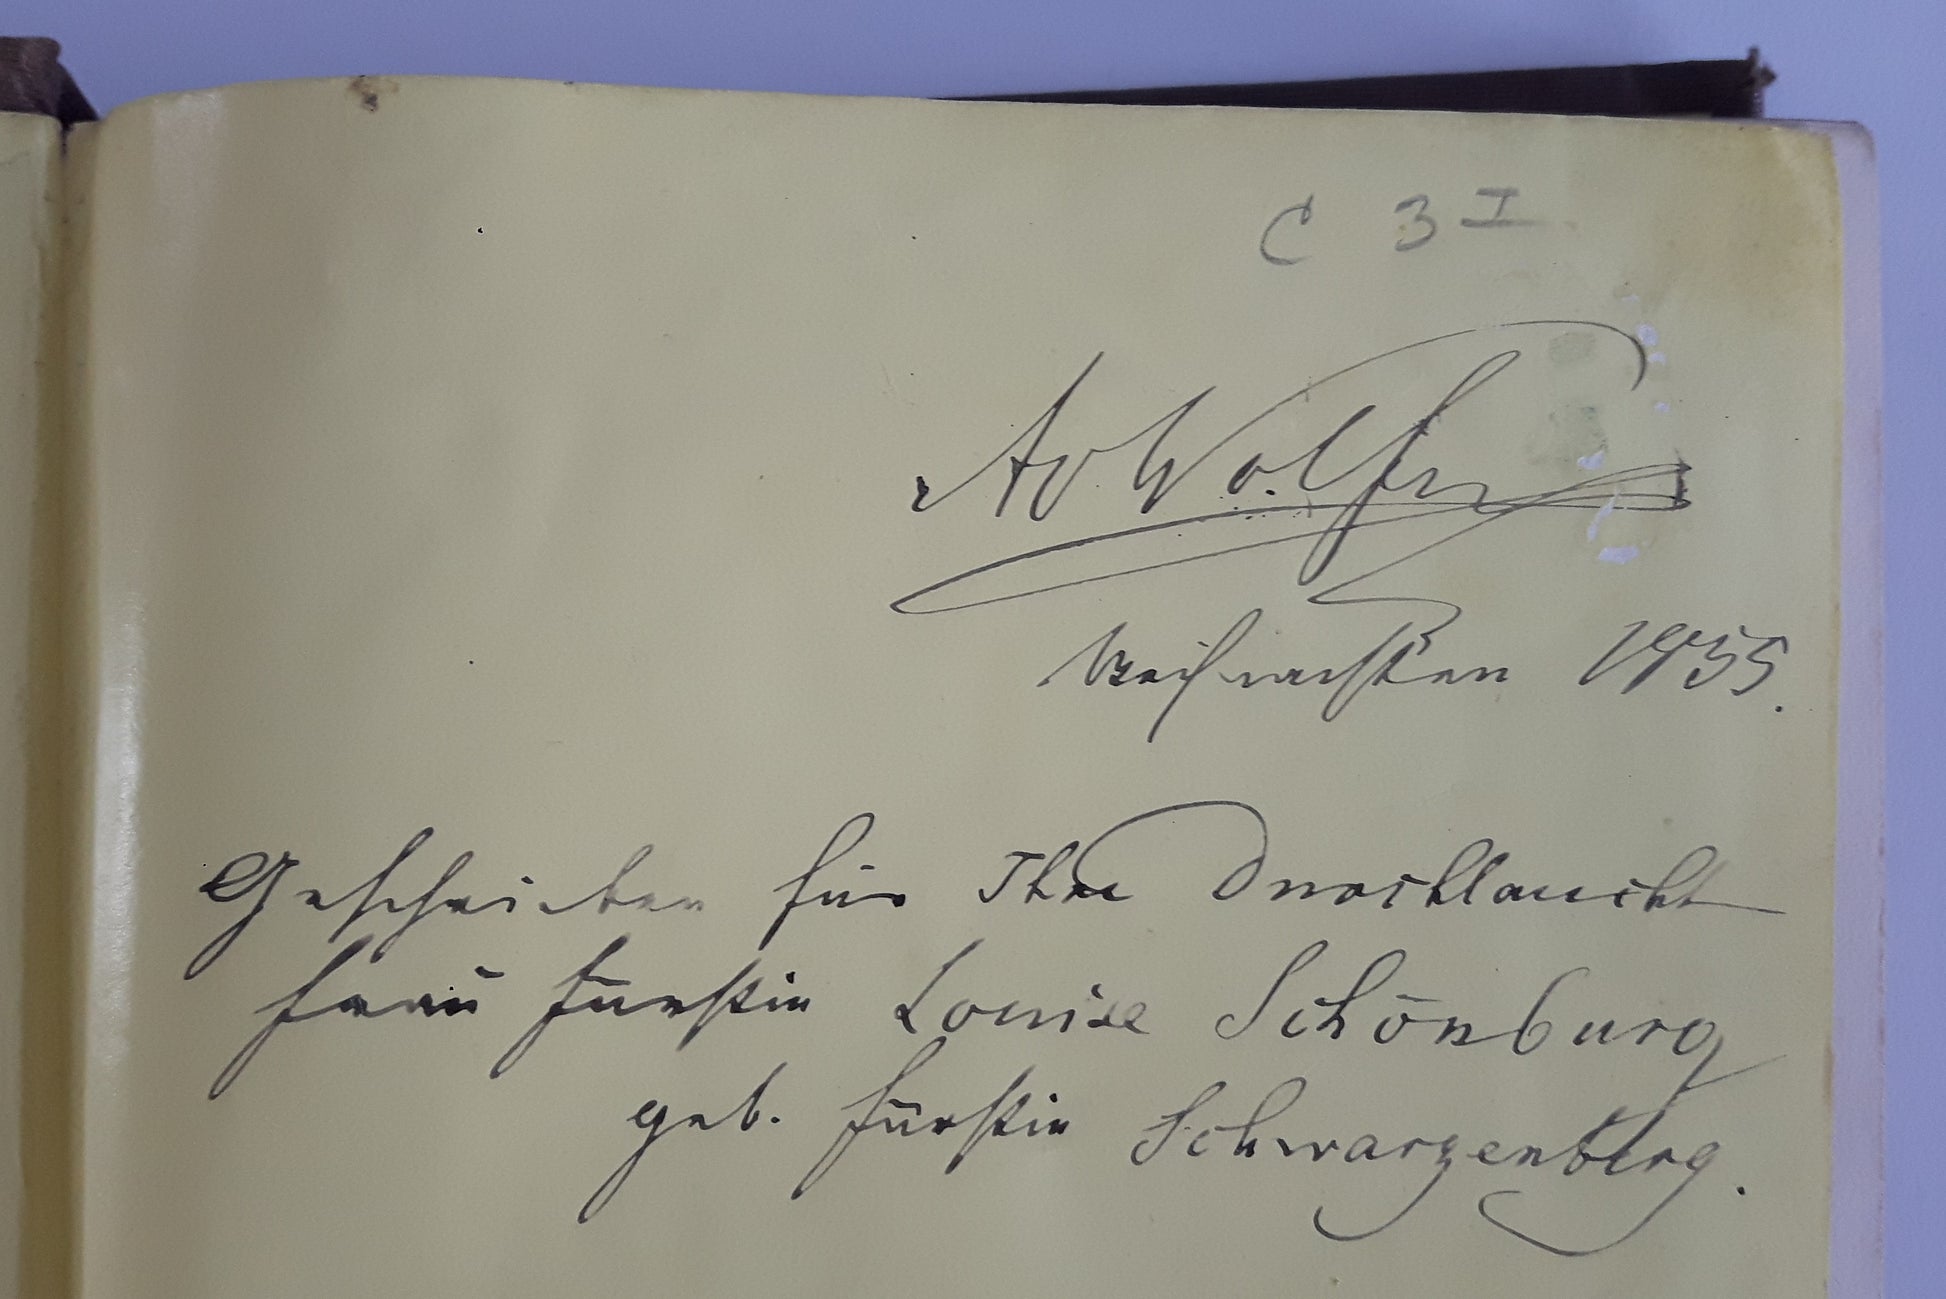 C 3 I
Weihnachten 1935.
Geschrieben für Ihre Durchlaucht
Frau Fürstin Louise Schönburg
geb. Fürstin Schwarzenberg.